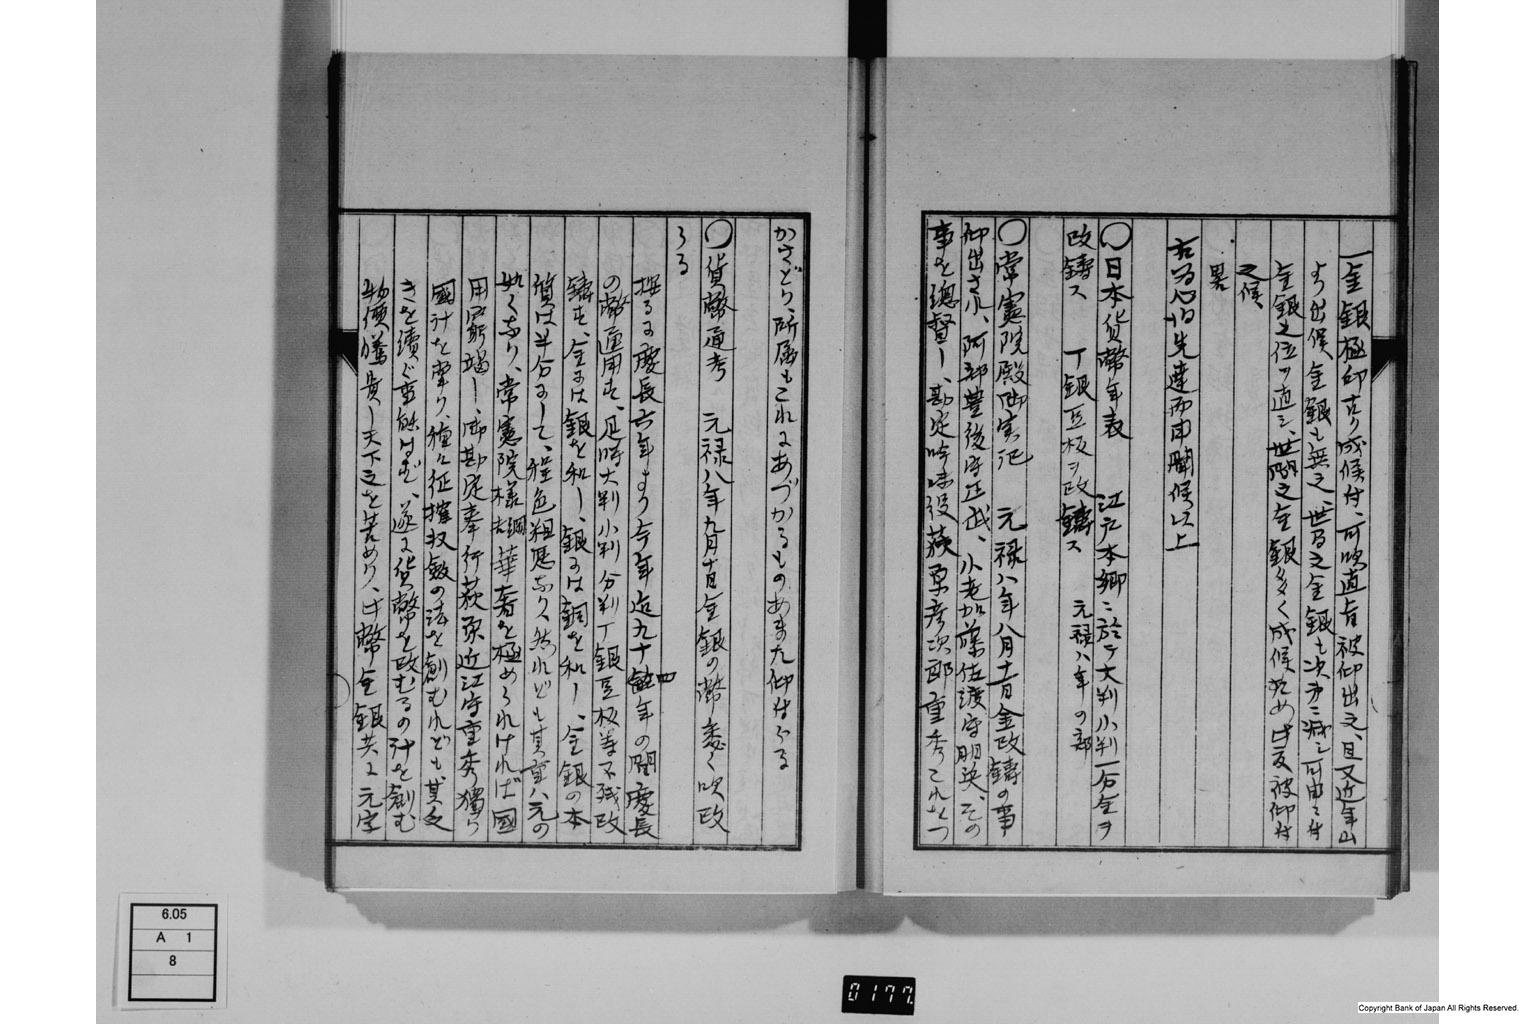 一金銀極印古り成候付、可吹直旨被仰出之、且又近年山
より出候金銀も無之、世間之金銀も次第ニ減シ可申ニ付
金銀之位ヲ直シ、世間之金銀多ク成候ため此度被仰付
之候
畧
右為心得先達而申聞候以上
〇日本貨幣年表 江戸本郷ニ於テ大判小判一分金ヲ
改鋳ス 丁銀豆板ヲ改鋳ス 元禄八年の部
〇常憲院殿御実記 元禄八年八月十一日金改鋳の事
仰出され、阿部豊後守正武、小老加藤佐渡守明英、その
事を總督し、勘定吟味役荻原彦次郎重秀これをつ
かさどり、所属もこれにあづかるものあまた仰付らる
〇貨幣通考 元禄八年九月十日金銀の幣悉く吹改
らる
按るに慶長六年より今年迄九十四年の間慶長
の幣通用す、是時大判小判分判丁銀豆板等不残改
鋳す、金には銀を和し、銀には銅を和し、金銀の本
質は半分にして、程色粗悪なり、然れども其重ハ元の
如くなり、常憲院様綱吉華奢を極められければ國
用窮竭し、御勘定奉行荻原近江守重秀獨り
國計を掌り、種々征搉収斂の法を創むれども、其乏
きを續ぐ事能はず、遂に貨幣を改むるの計を創む
物價騰貴し天下之を苦めり、此幣金銀共に元字
6.05
A 1
8
0177.
Copyright Bank of Japan All Rights Reserved.